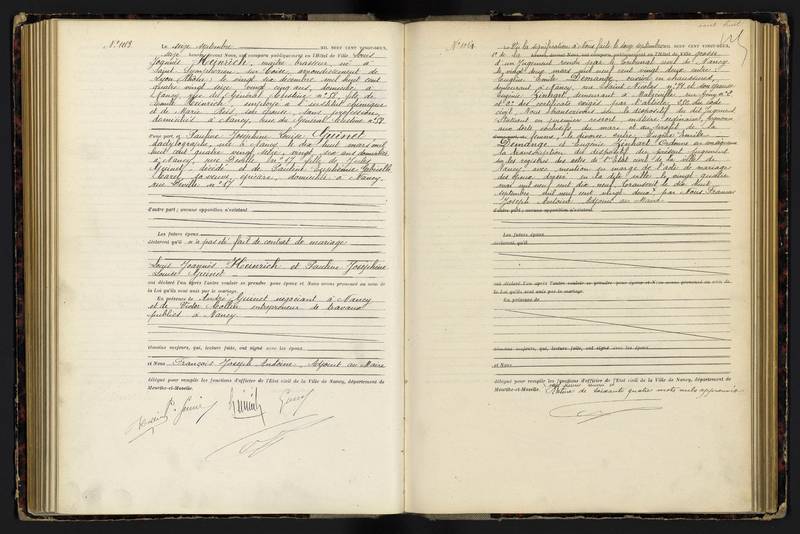 N° 1163.
Le seize septembre MIL NEUF CENT VINGT-DEUX,
devant Nous, ont comparu publiquement en l'Hôtel de Ville, Louis
Joannès Heinrich, maître brasseur, né à
Saint Symphorien sur Coise, arrondissement de
Lyon Rhône le vingt six décembre mil huit cent
quatre vingt seize, vingt cinq ans, domicilié à
Nancy, rue du Général n° 58, fils de
Heinrich, employé à l'institut chimique
et de Marie son épouse, sans profession,
domiciliés à Nancy, rue du Général n° 58.
d'une part, et Pauline Joséphine Louise Guinet
dactylographe, née à Nancy le dix huit mars mil
huit cent quatre vingt seize, vingt six ans domiciliée
à Nancy, rue n° 17 fille de Jules
Guinet, décédé et de Pauline Euphémie Gabrielle
sa veuve, domiciliée à Nancy,
rue n° 17
d'autre part; aucune opposition n'existant
Les futurs époux
déclarent qu'il n'a pas été fait de contrat de mariage
Louis Joannès Heinrich et Pauline Joséphine
Louise Guinet
ont déclaré l'un après l'autre vouloir se prendre pour époux et Nous avons prononcé au nom de
la Loi qu'ils sont unis par le mariage.
En présence de André Guinet négociant à Nancy
et de Victor entrepreneur de travaux
publics à Nancy
témoins majeurs, qui, lecture faite, ont signé avec les époux
et Nous François Joseph Antoine, Adjoint au Maire
délégué pour remplir les fonctions d'officier de l'État civil de la Ville de Nancy, département de
Meurthe-et-Moselle.
N° 1164
Le Vu la signification à Nous faite le douze septembre MIL NEUF CENT VINGT-DEUX,
1° de la grosse
d'un Jugement rendu par le Tribunal civil de Nancy
le vingt deux mars mil neuf cent vingt deux entre
Eugène Emile Demange, ouvrier en chaussures,
demeurant à Nancy, rue Saint Nicolas n° 78 et son épouse
Eugénie Linhart, demeurant à
et 2° des certificats exigés par l'article 252 du Code
civil, Nous transcrivons ici le dispositif du dit Jugement
Statuant en premier ressort, matière ordinaire, prononce
aux torts exclusifs du mari et au profit de la
femme, le divorce entre Eugène Emile
Demange et Eugénie Linhart Ordonne en conséquence
la transcription du dispositif du présent Jugement
sur les registres des actes de l'État civil de la ville de
Nancy avec mention en marge de l'acte de mariage
des époux dressé en la dite ville le vingt quatre
mai mil neuf cent dix neuf. Transcrit le dix huit
septembre mil neuf cent vingt deux par Nous François
Joseph Antoine Adjoint au Maire
d'autre part; aucune opposition n'existant
Les futurs époux
déclarent qu'il
ont déclaré l'un après l'autre vouloir se prendre pour époux et Nous avons prononcé au nom de
la Loi qu'ils sont unis par le mariage.
En présence de
témoins majeurs, qui, lecture faite, ont signé avec les époux
et Nous
délégué pour remplir les fonctions d'officier de l'État civil de la Ville de Nancy, département de
Meurthe-et-Moselle. Rature de soixante quatre mots nuls approuvée